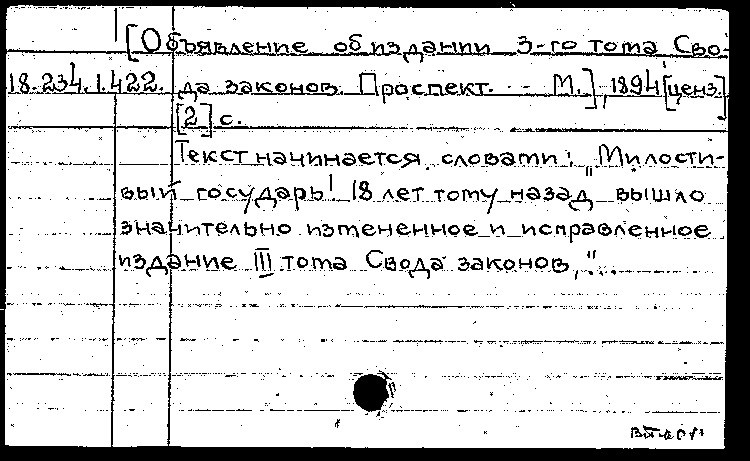 [Объявление об издании 3-го тома Сво-
18.234.1.422. да законов. Проспект. - М.], 1894 [ценз.]
[2] с.
Текст начинается словами: "Милости-
вый государь! 18 лет тому назад вышло
значительно измененное и исправленное
издание III тома Свода законов,"..